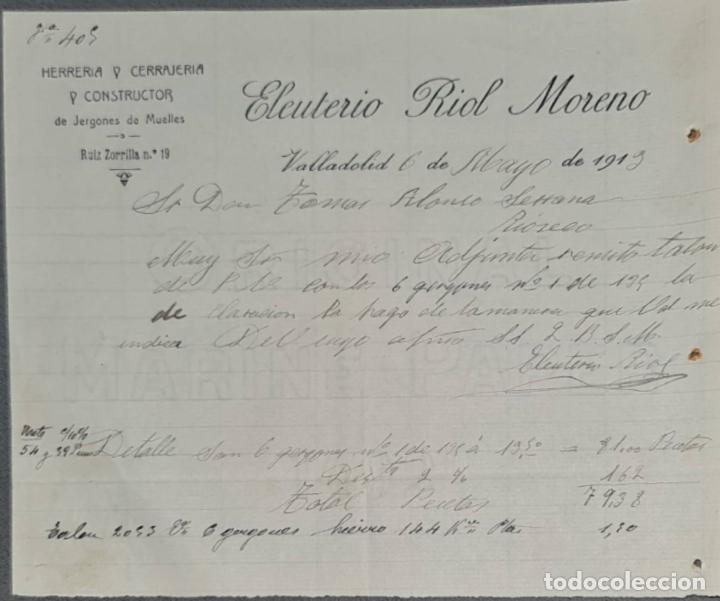 Fª 405
HERRERIA Y CERRAJERIA
Y CONSTRUCTOR
de Jergones de Muelles
Ruiz Zorrilla n.º 19
Eleuterio Riol Moreno
Valladolid 6 de Mayo de 1913
Sr Don Tomas Alonso
Rioseco
Muy Sr mio Adjunto remito talon
de con los 6 gergones nº 1 de 135 la
de claracion la hago de la manera que Vd me
indica S. S. Q. B. S. M.
Eleuterio Riol
Detalle Son 6 gergones nº 1 de 135 á 13,50 = 81,00 Pesetas
2 % 162
Total Pesetas 79,38
Talon 2033 6 gergones hierro 144 1,30
todocoleccion